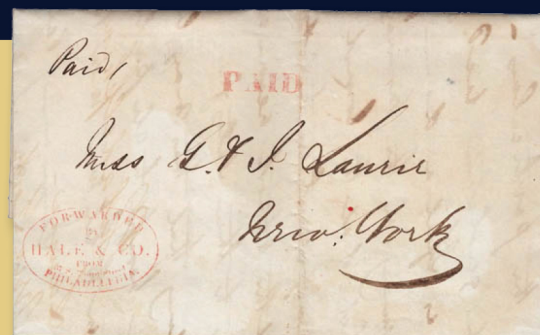 Paid,
PAID
Mess G. & I. Laurie
New. York
FORWARDED
BY
HALE & CO.
FROM
PHILADELPHIA.